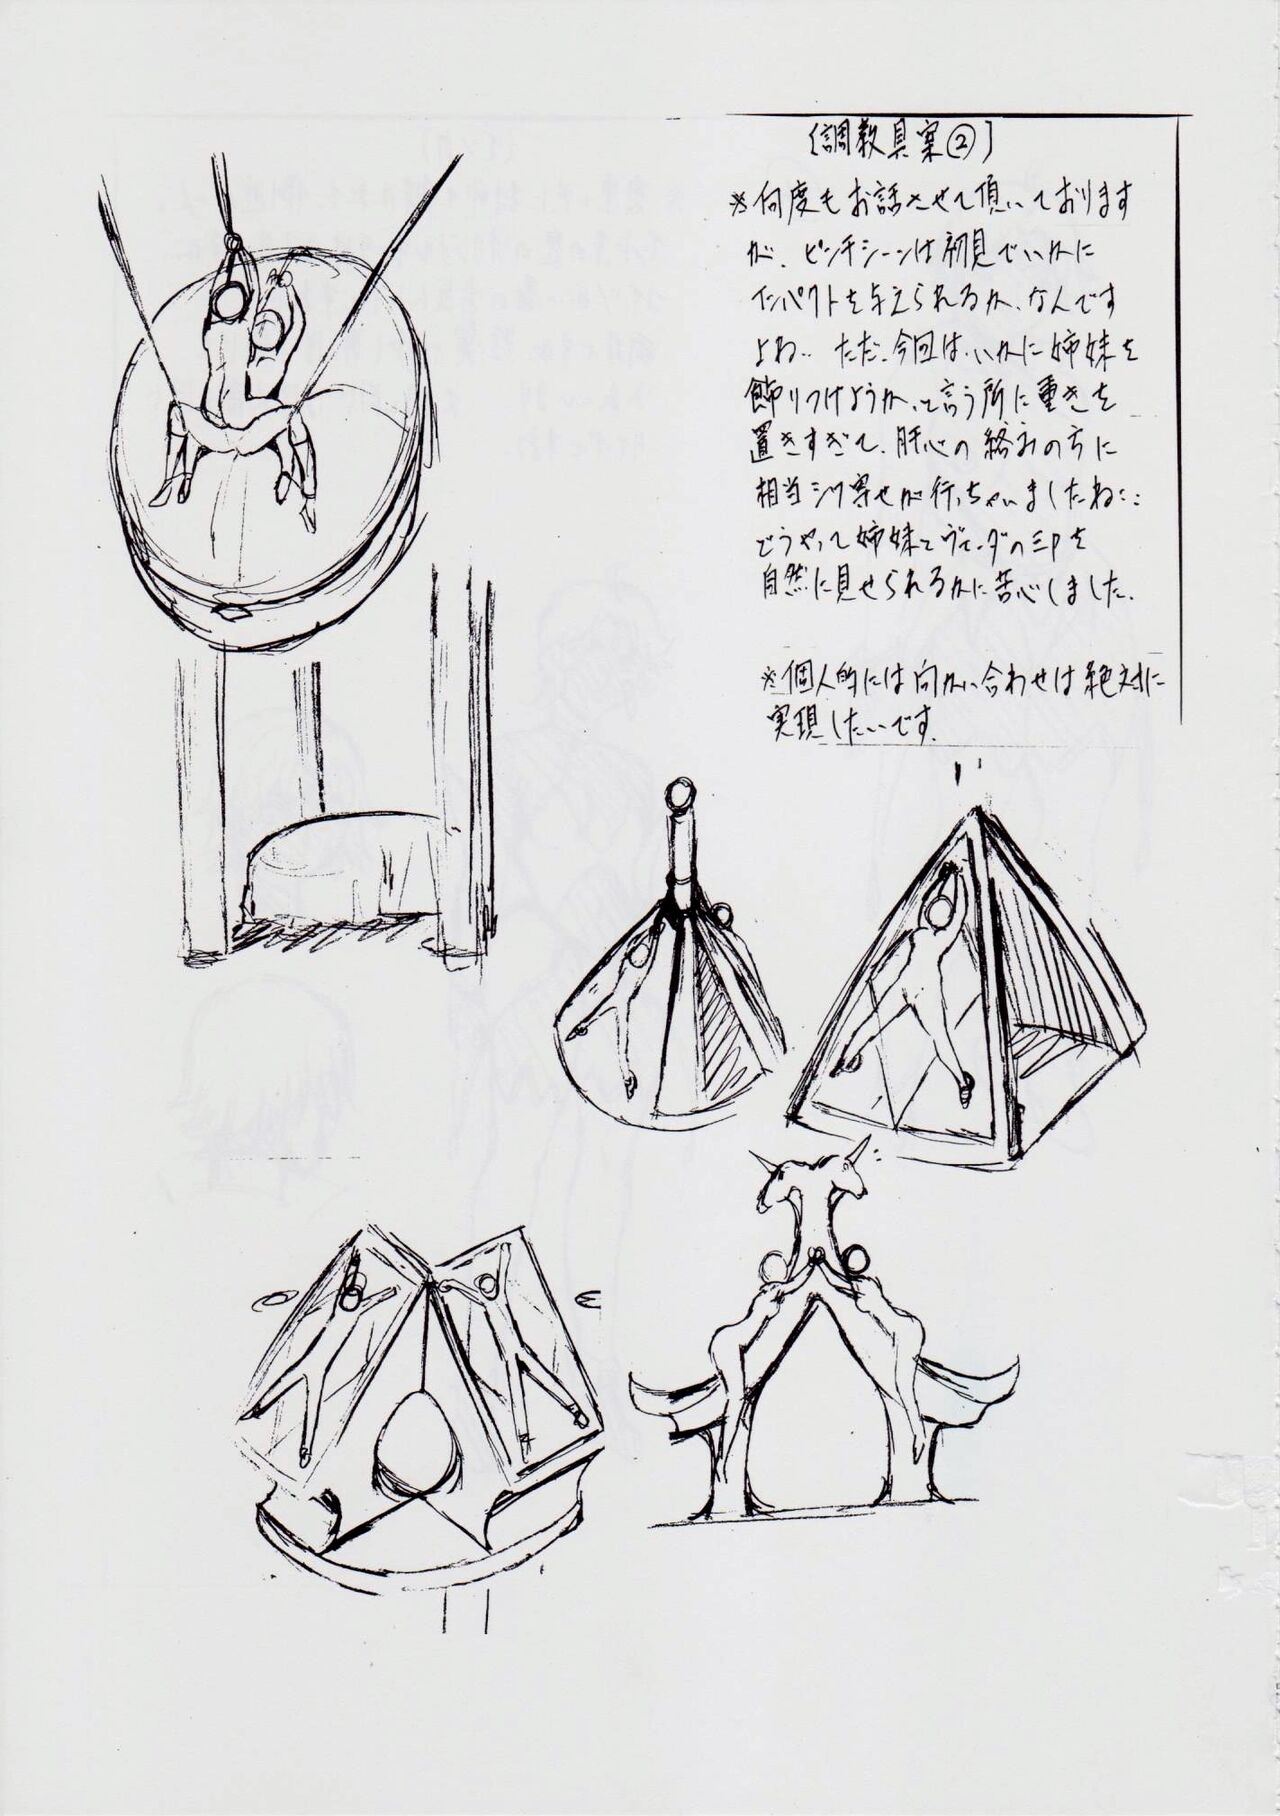 〔調教具案②〕
※何度もお話させて頂いております
が、ピンチシーンは初見でいかに
インパクトを与えられるか、なんです
よね‥ ただ、今回は、いかに姉妹を
飾りつけようか、と言う所に重きを
置きすぎて、肝心の絡みの方に
相当シワ寄せが行っちゃいましたね‥
どうやって姉妹とヴェーダの三Pを
自然に見せられるかに苦心しました。
※個人的には向かい合わせは絶対に
実現したいです。